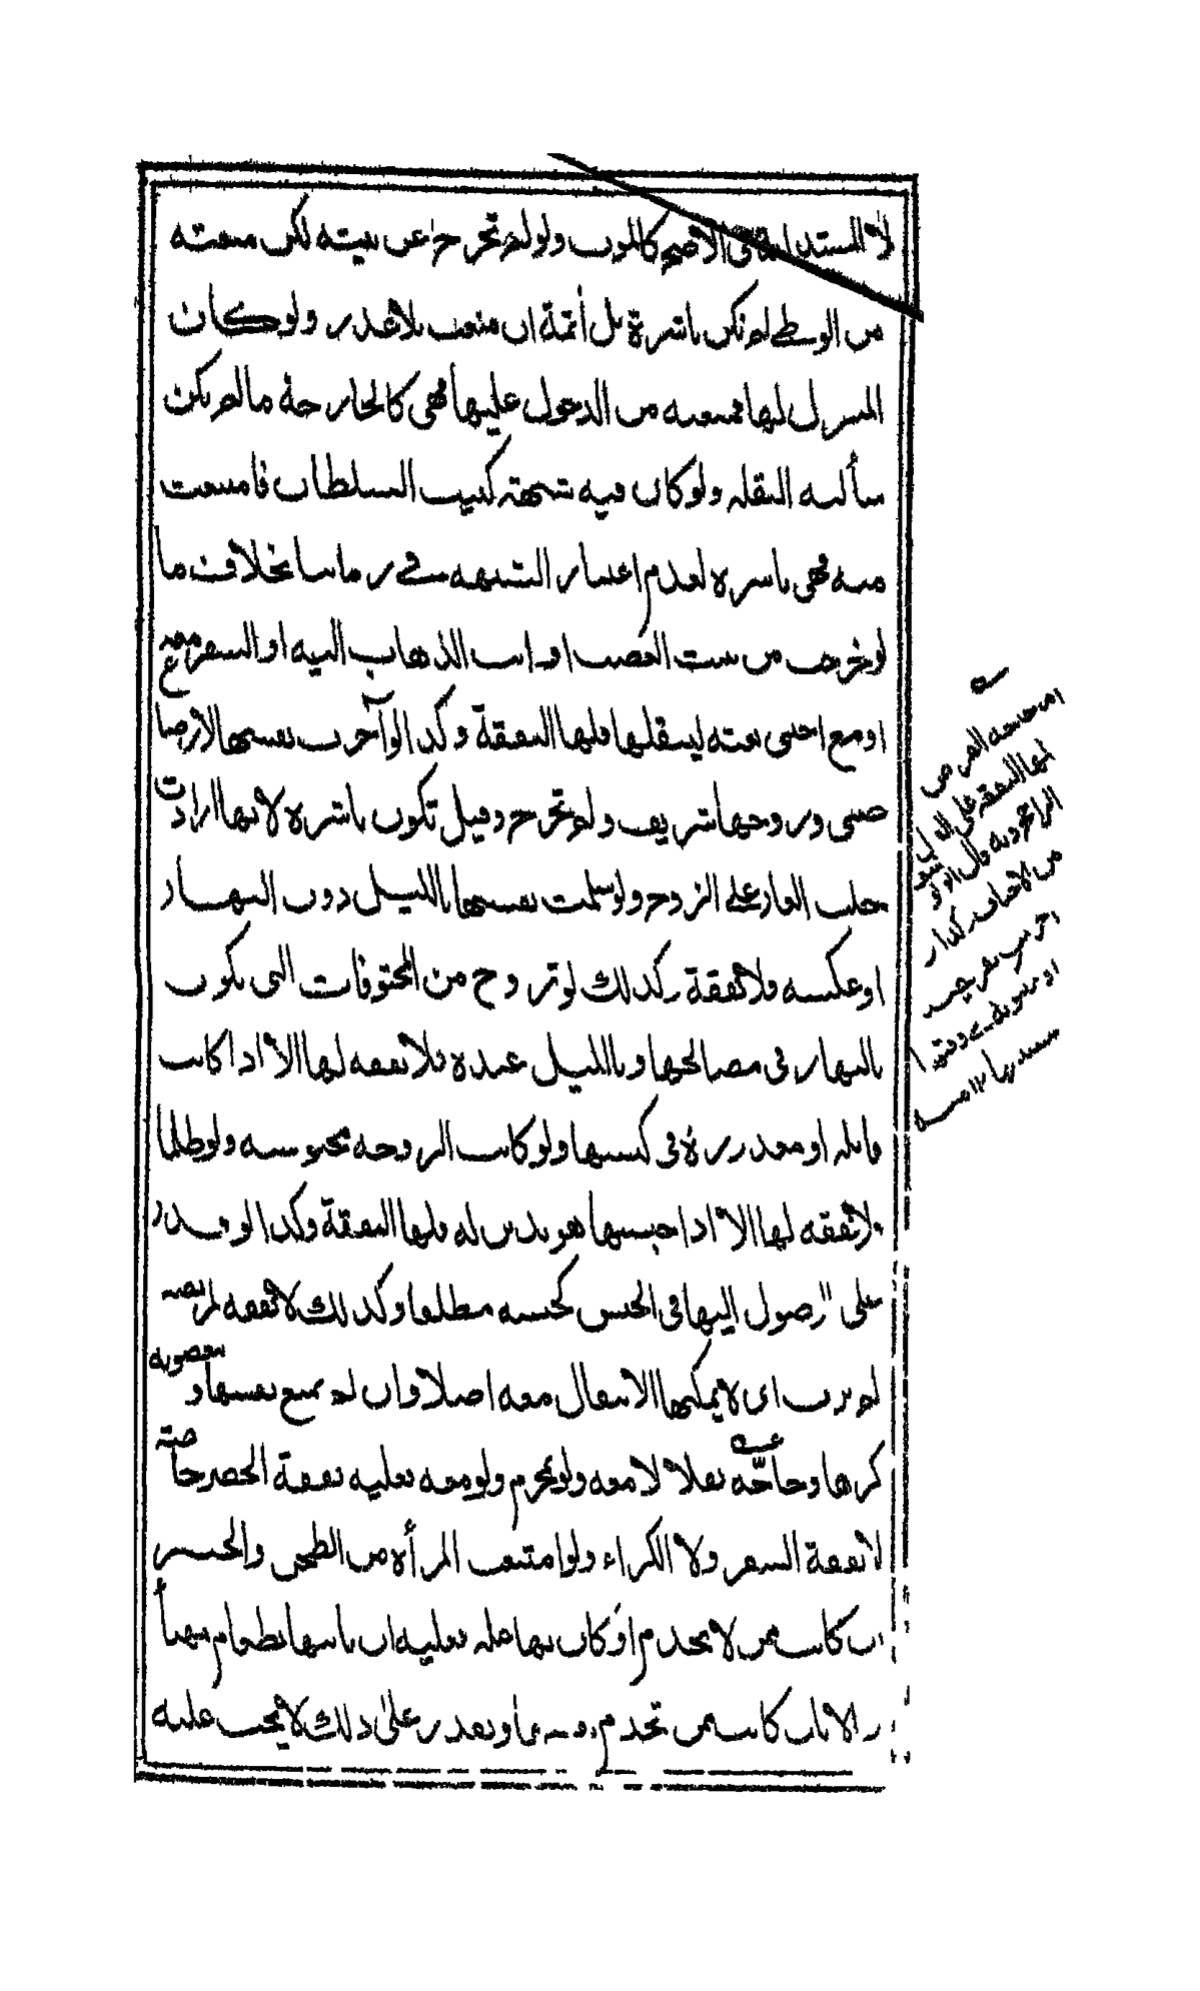 لا المستدامة في الاصح كالموت ولو لم تخرج عن بيته لكن منعته
من الوطئ لم تكن ناشزة بل اثمة ان منعت بلا عذر ولو كان
المنزل لها فمنعته من الدخول عليها فهي كالخارجة ما لم يكن
سألته النقلة ولو كان فيه شبهة كبيت السلطان فامتنعت
منه فهي ناشزة لعدم اعتبار الشبهة في زماننا بخلاف ما
لو خرجت من بيت الغصب او ابت الذهاب اليه او السفر معه
او مع اجنبي بعثه لينقلها فلها النفقة وكذا لو آجرت نفسها لارضاع
صبي وزوجها شريف ولم تخرج وقيل تكون ناشزة لانها ارادت
جلب العار على الزوج ولو سلمت نفسها بالليل دون النهار
او عكسه فلا نفقة وكذلك لو تزوج من المحترفات التي تكون
بالنهار في مصالحها وبالليل عنده فلا نفقة لها الا اذا كانت
قابلة او معذورة في كسبها ولو كانت الزوجة محبوسة ولو ظلما
لا نفقة لها الا اذا حبسها هو بدين له فلها النفقة وكذا لو قدر
على الوصول اليها في الحبس كحبسه مطلقا وكذلك لا نفقة لمريضة
لم تزف اي لا يمكنها الانتقال معه اصلا وان لم تمنع نفسها ومغصوبة
كرها وحاجة نفلا لا معه ولو بمحرم ولو معه فعليه نفقة الحضر خاصة
لا نفقة السفر ولا الكراء ولو امتنعت المرأة من الطحن والخبز
ان كانت ممن لا تخدم او كان بها علة فعليه ان ياتيها بطعام مهيأ
والا بان كانت ممن تخدم نفسها وتقدر على ذلك لا يجب عليه